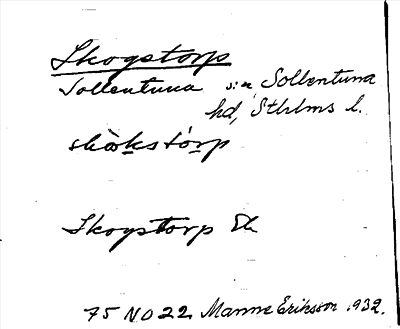 Skogstorp
Sollentuna s:n Sollentuna
hd, Sthlms l.
skòkstòrp
Skogstorp Ek
75 NO 22 Manne Eriksson 1932.